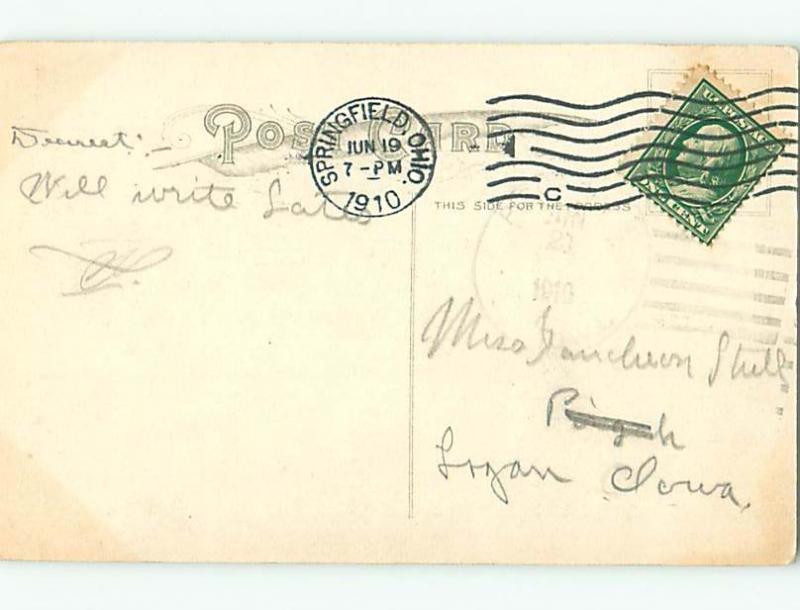 POST CARD
SPRINGFIELD, OHIO.
JUN 19
7 - PM
1910
C
THIS SIDE FOR THE ADDRESS
ONE CENT
1910
Dearest: –
Will write Later
H.
Miss
Logan Iowa.